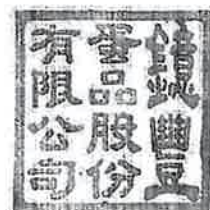 豐
蛋品股份
有限公司